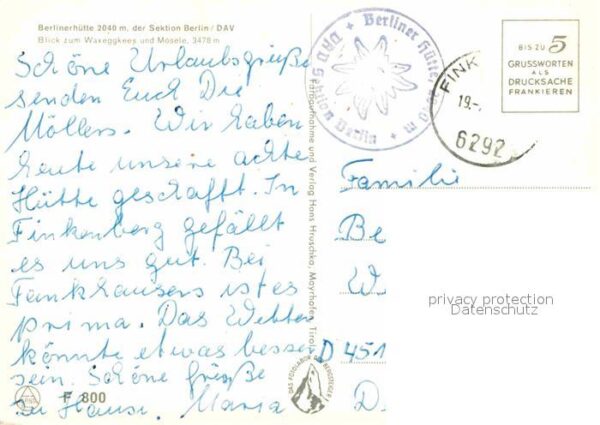 Berlinerhütte 2040 m, der Sektion Berlin / DAV
Blick zum Waxeggkees und Mösele, 3478 m
Schöne Urlaubsgrüße
senden Euch Die
Möllers. Wir haben
heute unsere achte
Hütte geschafft. In
Finkenberg gefällt
es uns gut. Bei
Fankhausers ist es
prima. Das Wetter
könnte etwas besser
sein. Schöne Grüße
zu Hause. Maria
F 800
Farbaufnahme und Verlag Hans Hruschka, Mayrhofen, Tirol
DAS FOTOLABOR DER BERGSTEIGER
Berliner Hütte
Sektion Berlin
BIS ZU 5
GRUSSWORTEN
ALS
DRUCKSACHE
FRANKIEREN
FINK
19.-
6292
Familie
Be
W
D 451
D.
privacy protection
Datenschutz